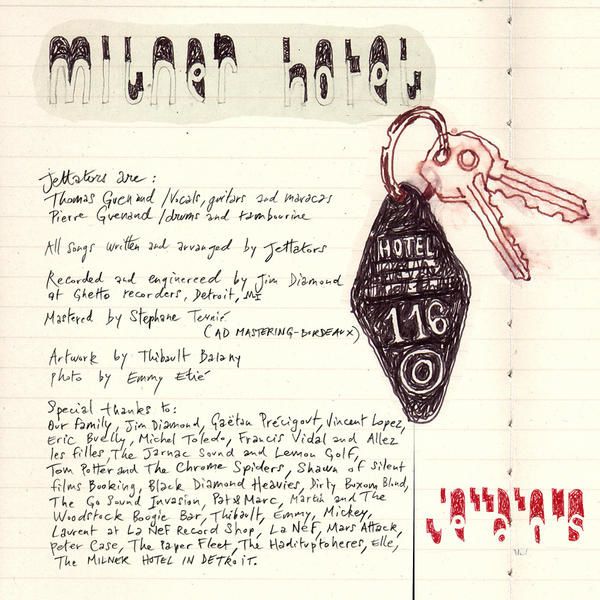 Milner hotel
Jettators are :
Thomas Guenand / Vocals, guitars and maracas
Pierre Guenand / drums and tambourine
All songs written and arranged by Jettators
Recorded and engineered by Jim Diamond
at Ghetto recorders, Detroit, MI
Mastered by Stephane Teynié
(AD MASTERING-BORDEAUX)
Artwork by Thibault Balahy
photo by Emmy Etié
Special thanks to:
Our family, Jim Diamond, Gaëtan Précigout, Vincent Lopez,
Eric Buelly, Michel Toledo, Francis Vidal and Allez
les filles, The Jarnac Sound and Lemon Golf,
Tom Potter and The Chrome Spiders, Shawn of Silent
films Booking, Black Diamond Heavies, Dirty Buxom Blond,
The Go Sound Invasion, Pat & Marc, Martin and The
Woodstock Boogie Bar, Thibault, Emmy, Mickey,
Laurent at La Nef Record Shop, La NEF, Mars Attack,
Peter Case, The Paper Fleet, The Hadituptoheres, Elle,
The MILNER HOTEL IN DETROIT.
HOTEL
116